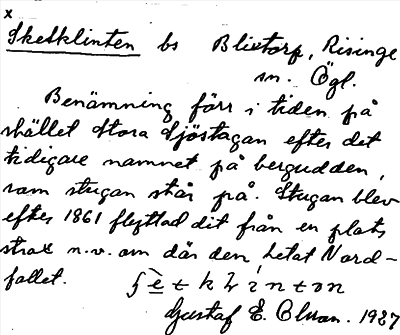 x
Sketklinten bs Blixtorp, Risinge
sn. Ögl.
Benämning förr i tiden på
stället Stora Sjöstugan efter det
tidigare namnet på bergudden,
som stugan står på. Stugan blev
efter 1861 flyttad dit från en plats
strax n.v. om där den hetat Nord-
fallet.
Gustaf E. Olson. 1927